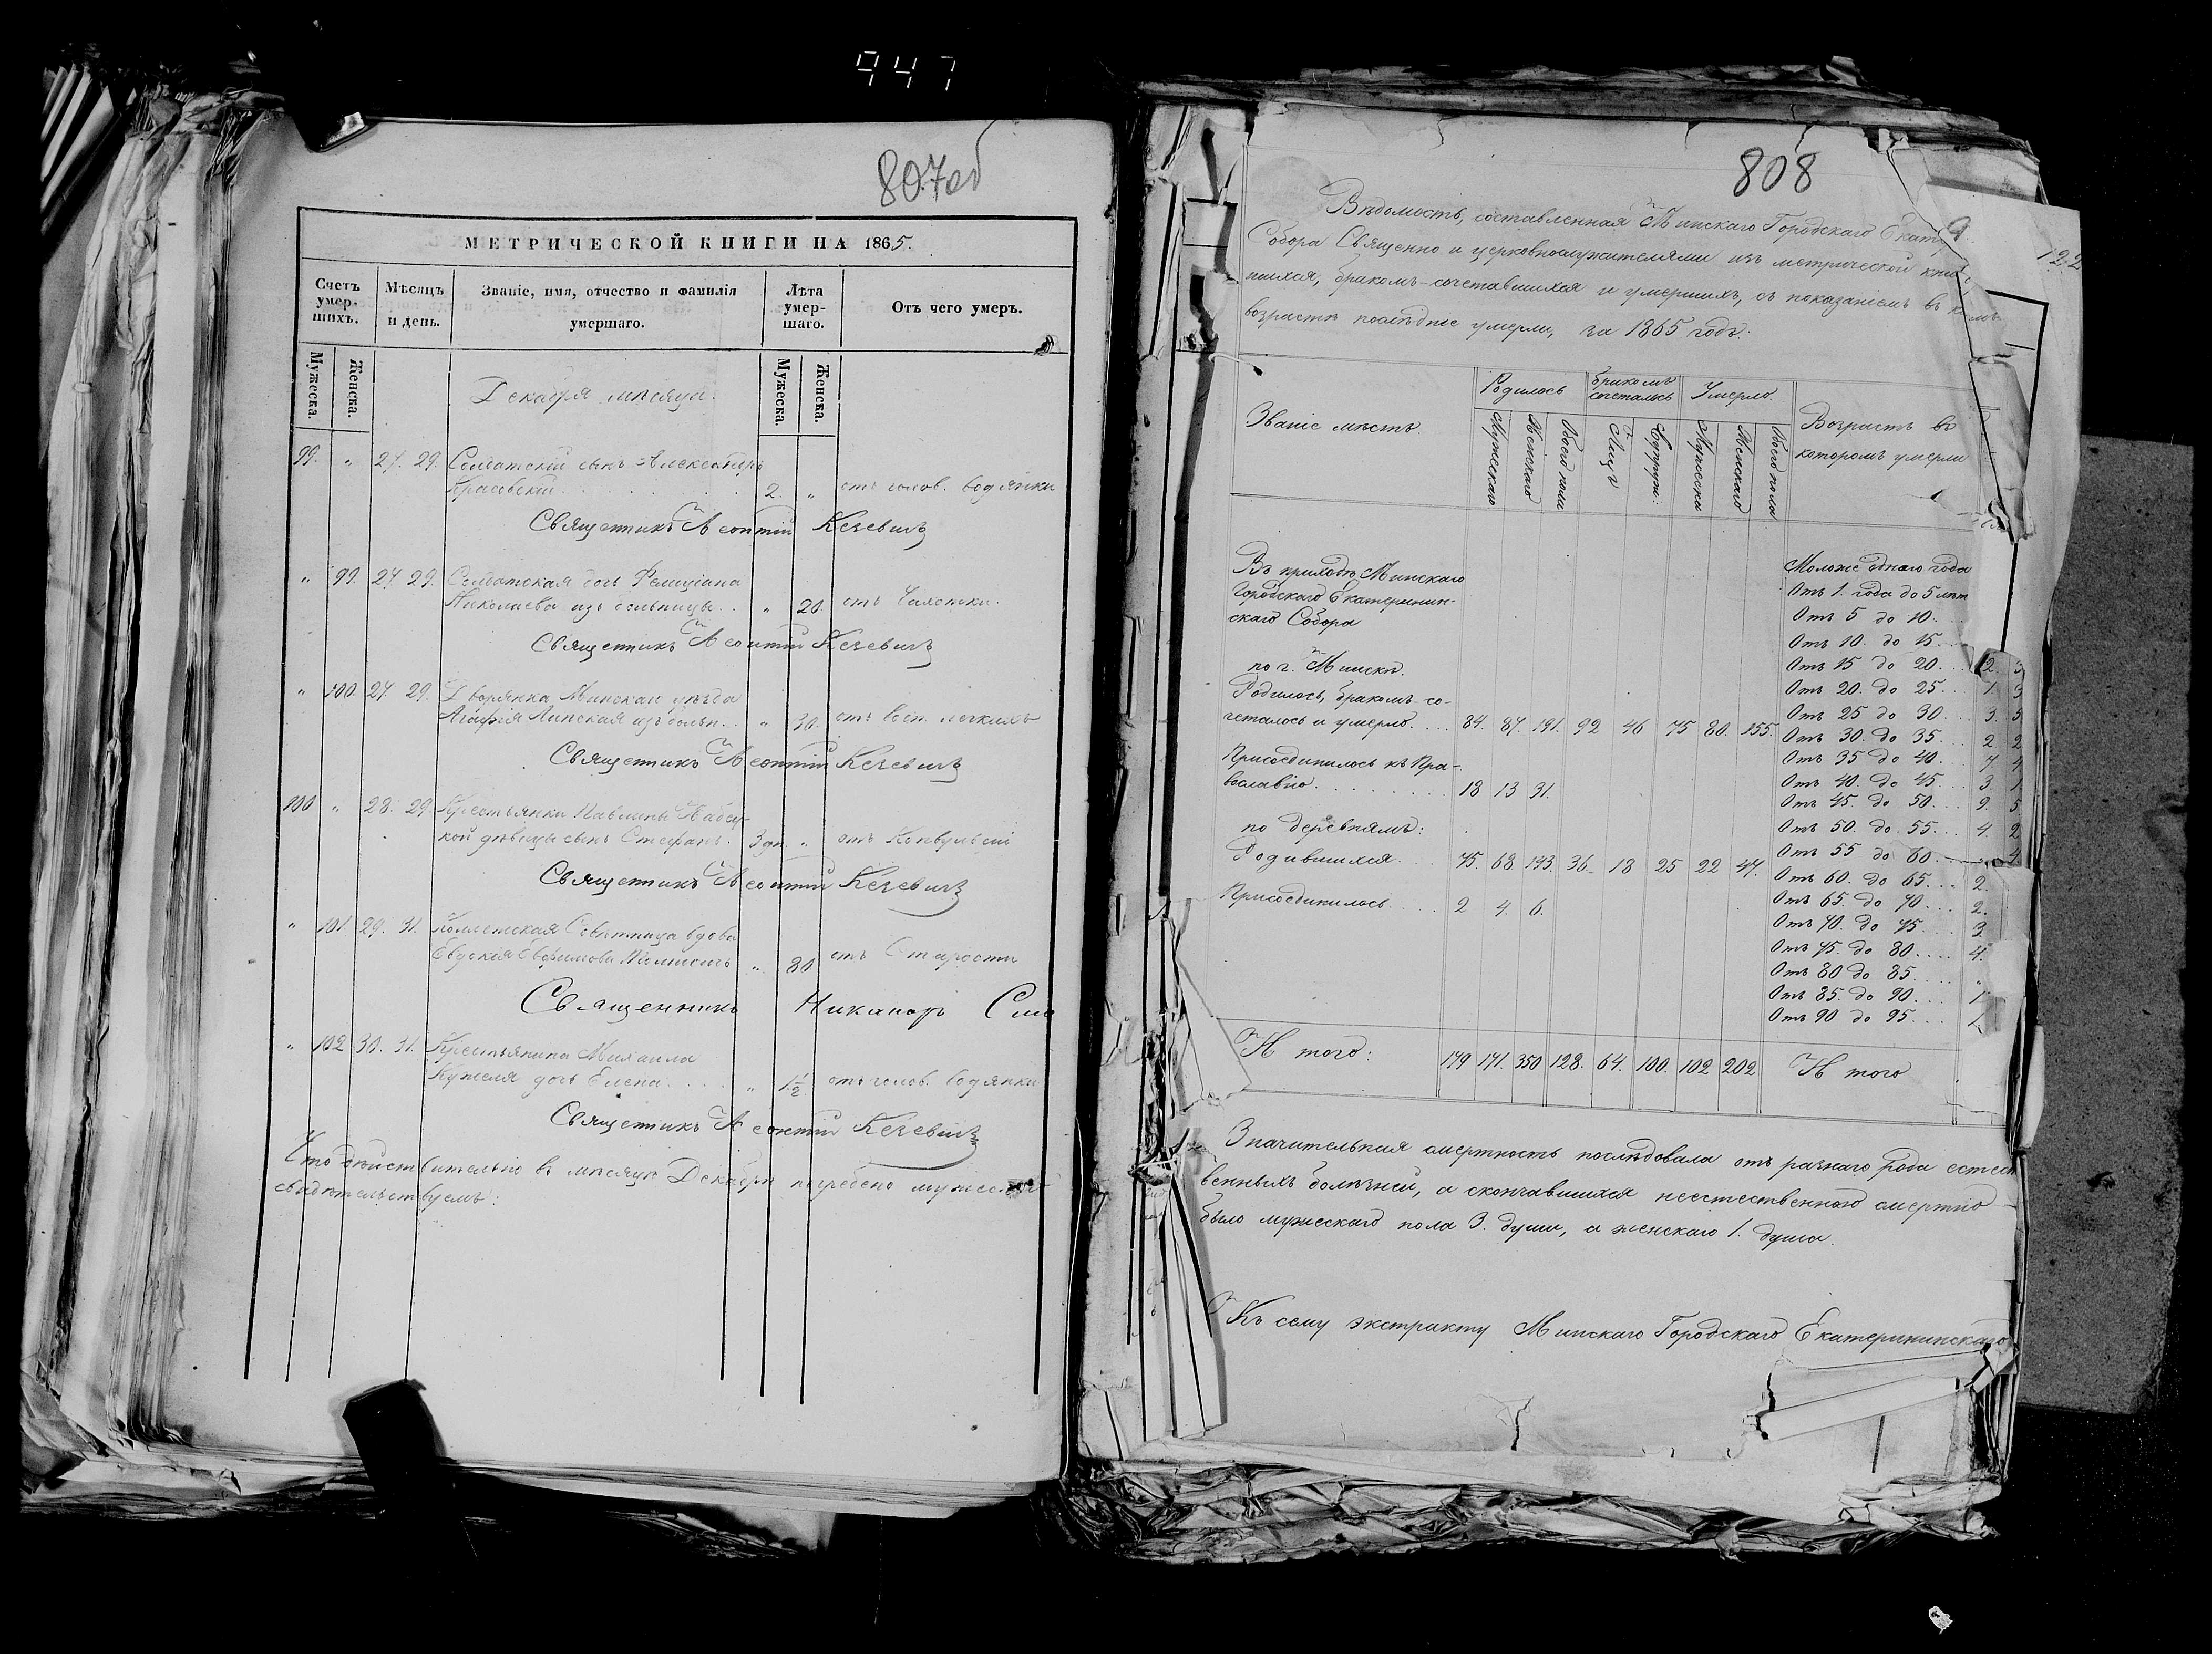 947
807об
МЕТРИЧЕСКОЙ КНИГИ НА 1865.
Счетъ умер- шихъ.
Мѣсяцъ и день.
Званіе, имя, отчество и фамилія умершаго.
Лѣта умер- шаго.
Отъ чего умеръ.
Мужеска. Женска.
Мужеска. Женска.
Декабря мѣсяца.
99. " 27. 29. Солдатскій сынъ Александръ
Красовскій 2. " отъ голов. водянки
Священникъ Леонтій Кечевичъ
" 99. 27 29. Солдатская дочь Фелиціана
Николаева изъ больницы. " 20. отъ Чахотки.
Священникъ Леонтій Кечевичъ
" 100. 27 29. Дворянка Минскаго уѣзда
Агафія Липская изъ больн. " 30. отъ восп. легкихъ
Священникъ Леонтій Кечевичъ
100 " 28. 29. Крестьянки Павлины
кой дѣвицы сынъ Стефанъ. 3 дн. " отъ Конвульсій
Священникъ Леонтій Кечевичъ
" 101. 29. 31. Коллежская Совѣтница вдова
Евдокія Евфимова " 80 отъ Старости
Священникъ Никаноръ
" 102 30. 31. Крестьянина Михаила
Кужеля дочь Елена " 1½ отъ голов. водянки
Священникъ Леонтій Кечевичъ
Что дѣйствительно въ мѣсяцѣ Декабрѣ погребено
свидѣтельствуемъ:
808
122
Вѣдомость, составленная Минскаго Городскаго
Собора Священно и церковнослужителями изъ метрической
шихся, бракомъ-сочетавшихся и умершихъ, съ показаніемъ въ
возрастѣ послѣдніе умерли, за 1865 годъ.
Званіе мѣстъ.
Родилось
Бракомъ сочеталось
Умерло
Возрастъ въ которомъ умерли
Мужескаго Женскаго Обоего пола Лицъ Супруж: Мужеска Женскаго Обоего пола
Въ приходѣ Минскаго
Городскаго Екатеринин-
скаго Собора
по г. Минску.
Родилось, бракомъ со-
четалось и умерло. 84. 87. 191. 92 46 75 80. 155.
Присоединилось къ Пра-
вославію. 18 13 31.
по деревнямъ:
Родившихся. 75. 68. 143. 36. 18 25 22 47.
Присоединилось 2 4. 6.
Моложе одного года
Отъ 1. года до 5 лѣт
Отъ 5 до 10.
Отъ 10. до 15
Отъ 15 до 20. 12 3
Отъ 20. до 25. 1 3
Отъ 25 до 30. 3. 5
Отъ 30. до 35. 2 2
Отъ 35 до 40. 7 4
Отъ 40. до 45. 3 1
Отъ 45. до 50. 9. 5
Отъ 50. до 55. 4. 2
Отъ 55 до 60. 4
Отъ 60. до 65. 2.
Отъ 65. до 70. 2.
Отъ 70. до 75. 3.
Отъ 75. до 80. 4.
Отъ 80 до 85. "
Отъ 85. до 90. 1
Отъ 90 до 95. 1
И того: 179 171. 350 128. 64. 100. 102 202 И того
Значительная смертность послѣдовала отъ разнаго рода естест
венныхъ болѣзней, а скончавшихся неестественною смертію
было мужескаго пола 3. души, а женскаго 1. душа.
Къ сему экстракту Минскаго Городскаго Екатерининскаго